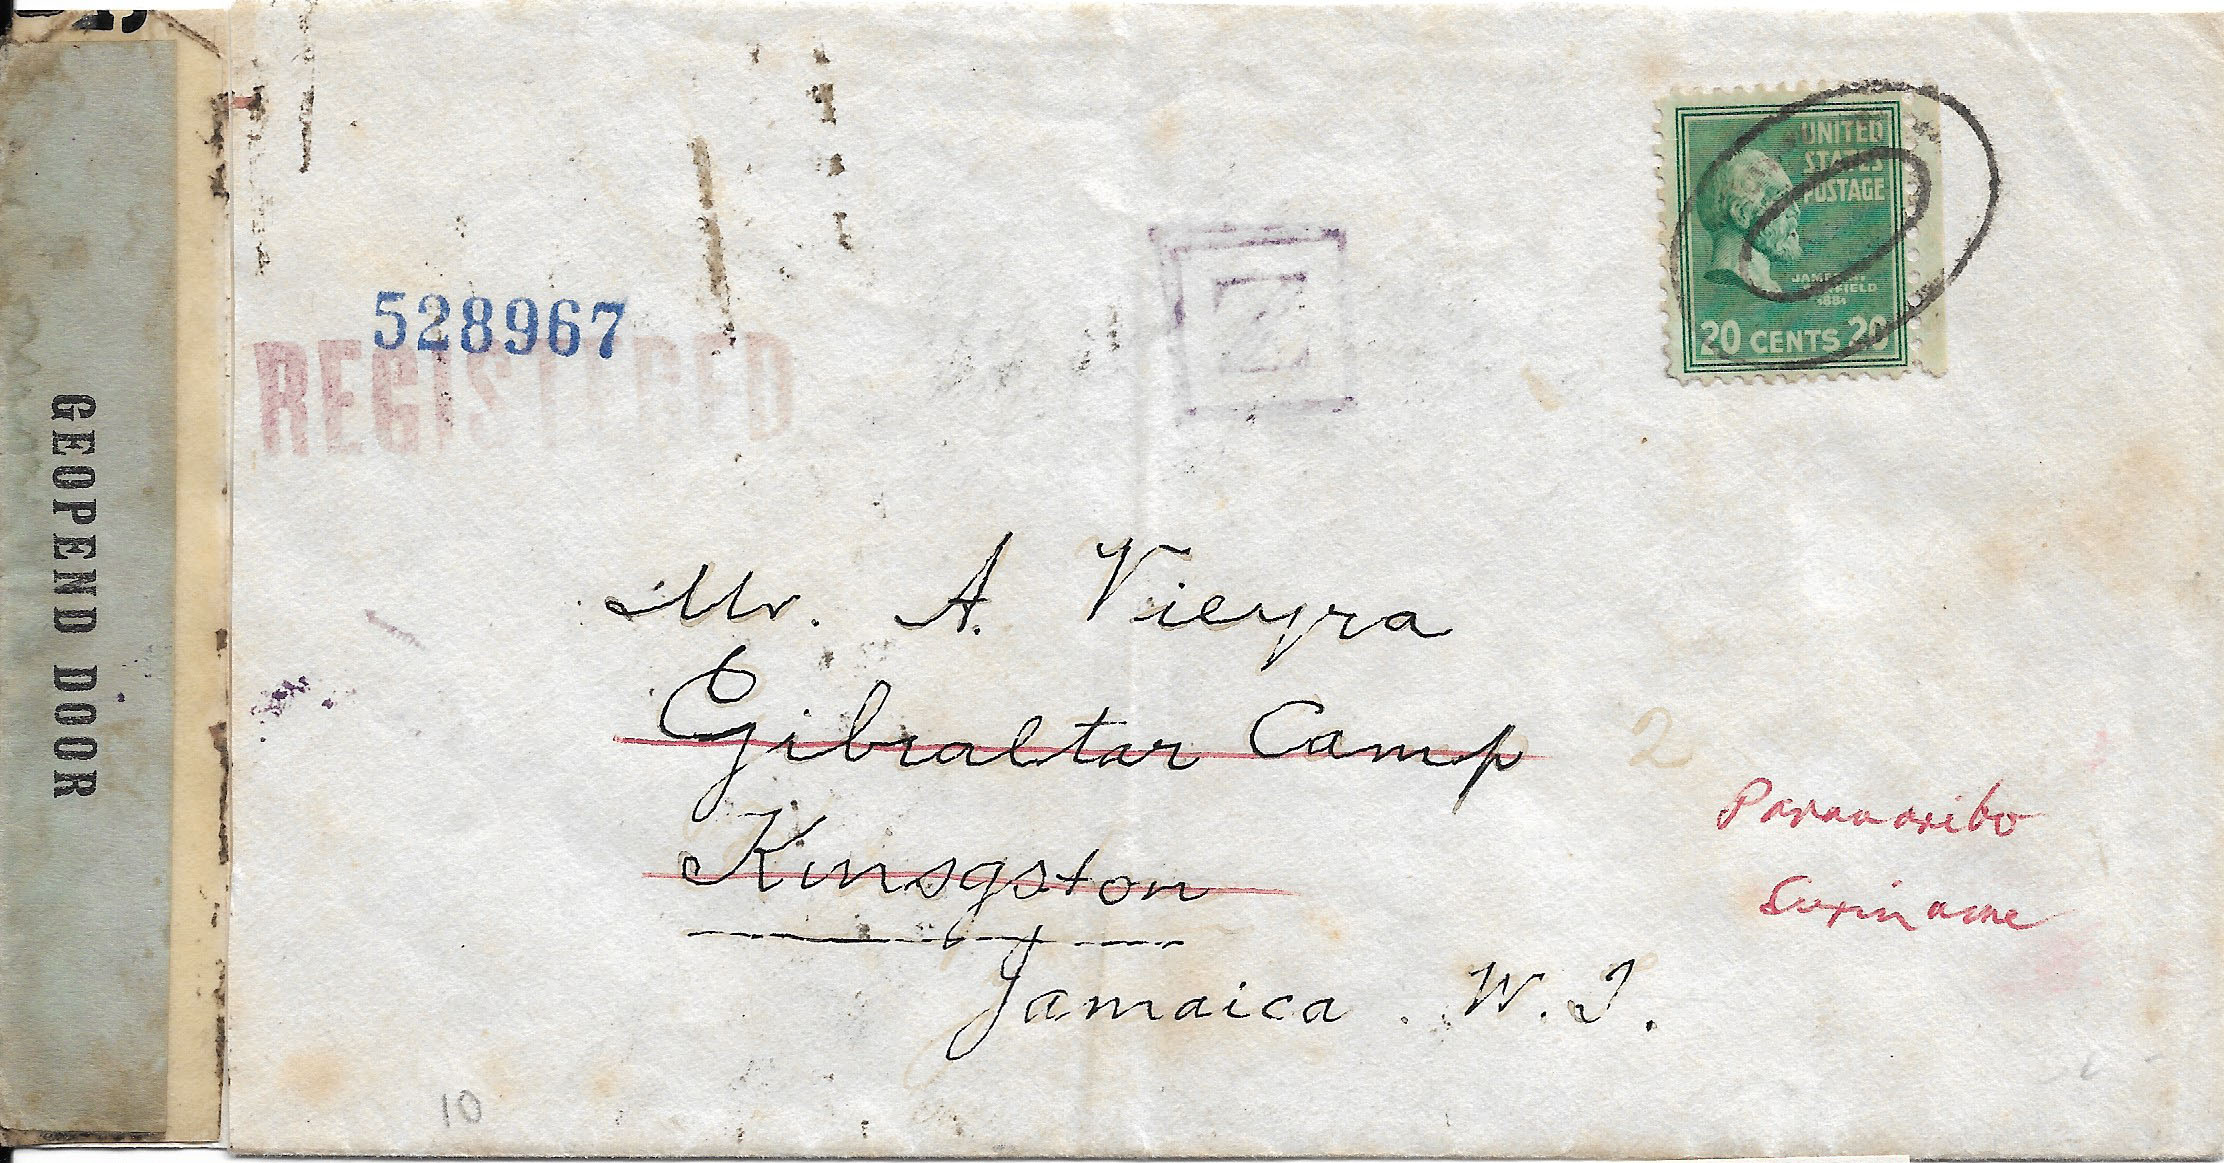 GEOPEND DOOR
528967
REGISTERED
UNITED
STATES
POSTAGE
JAMES A.
GARFIELD
1881
20 CENTS 20
Mr. A. Vieyra
Gibraltar Camp
2
Kinsgston
Jamaica. W. I.
Paramaribo
Suriname
10